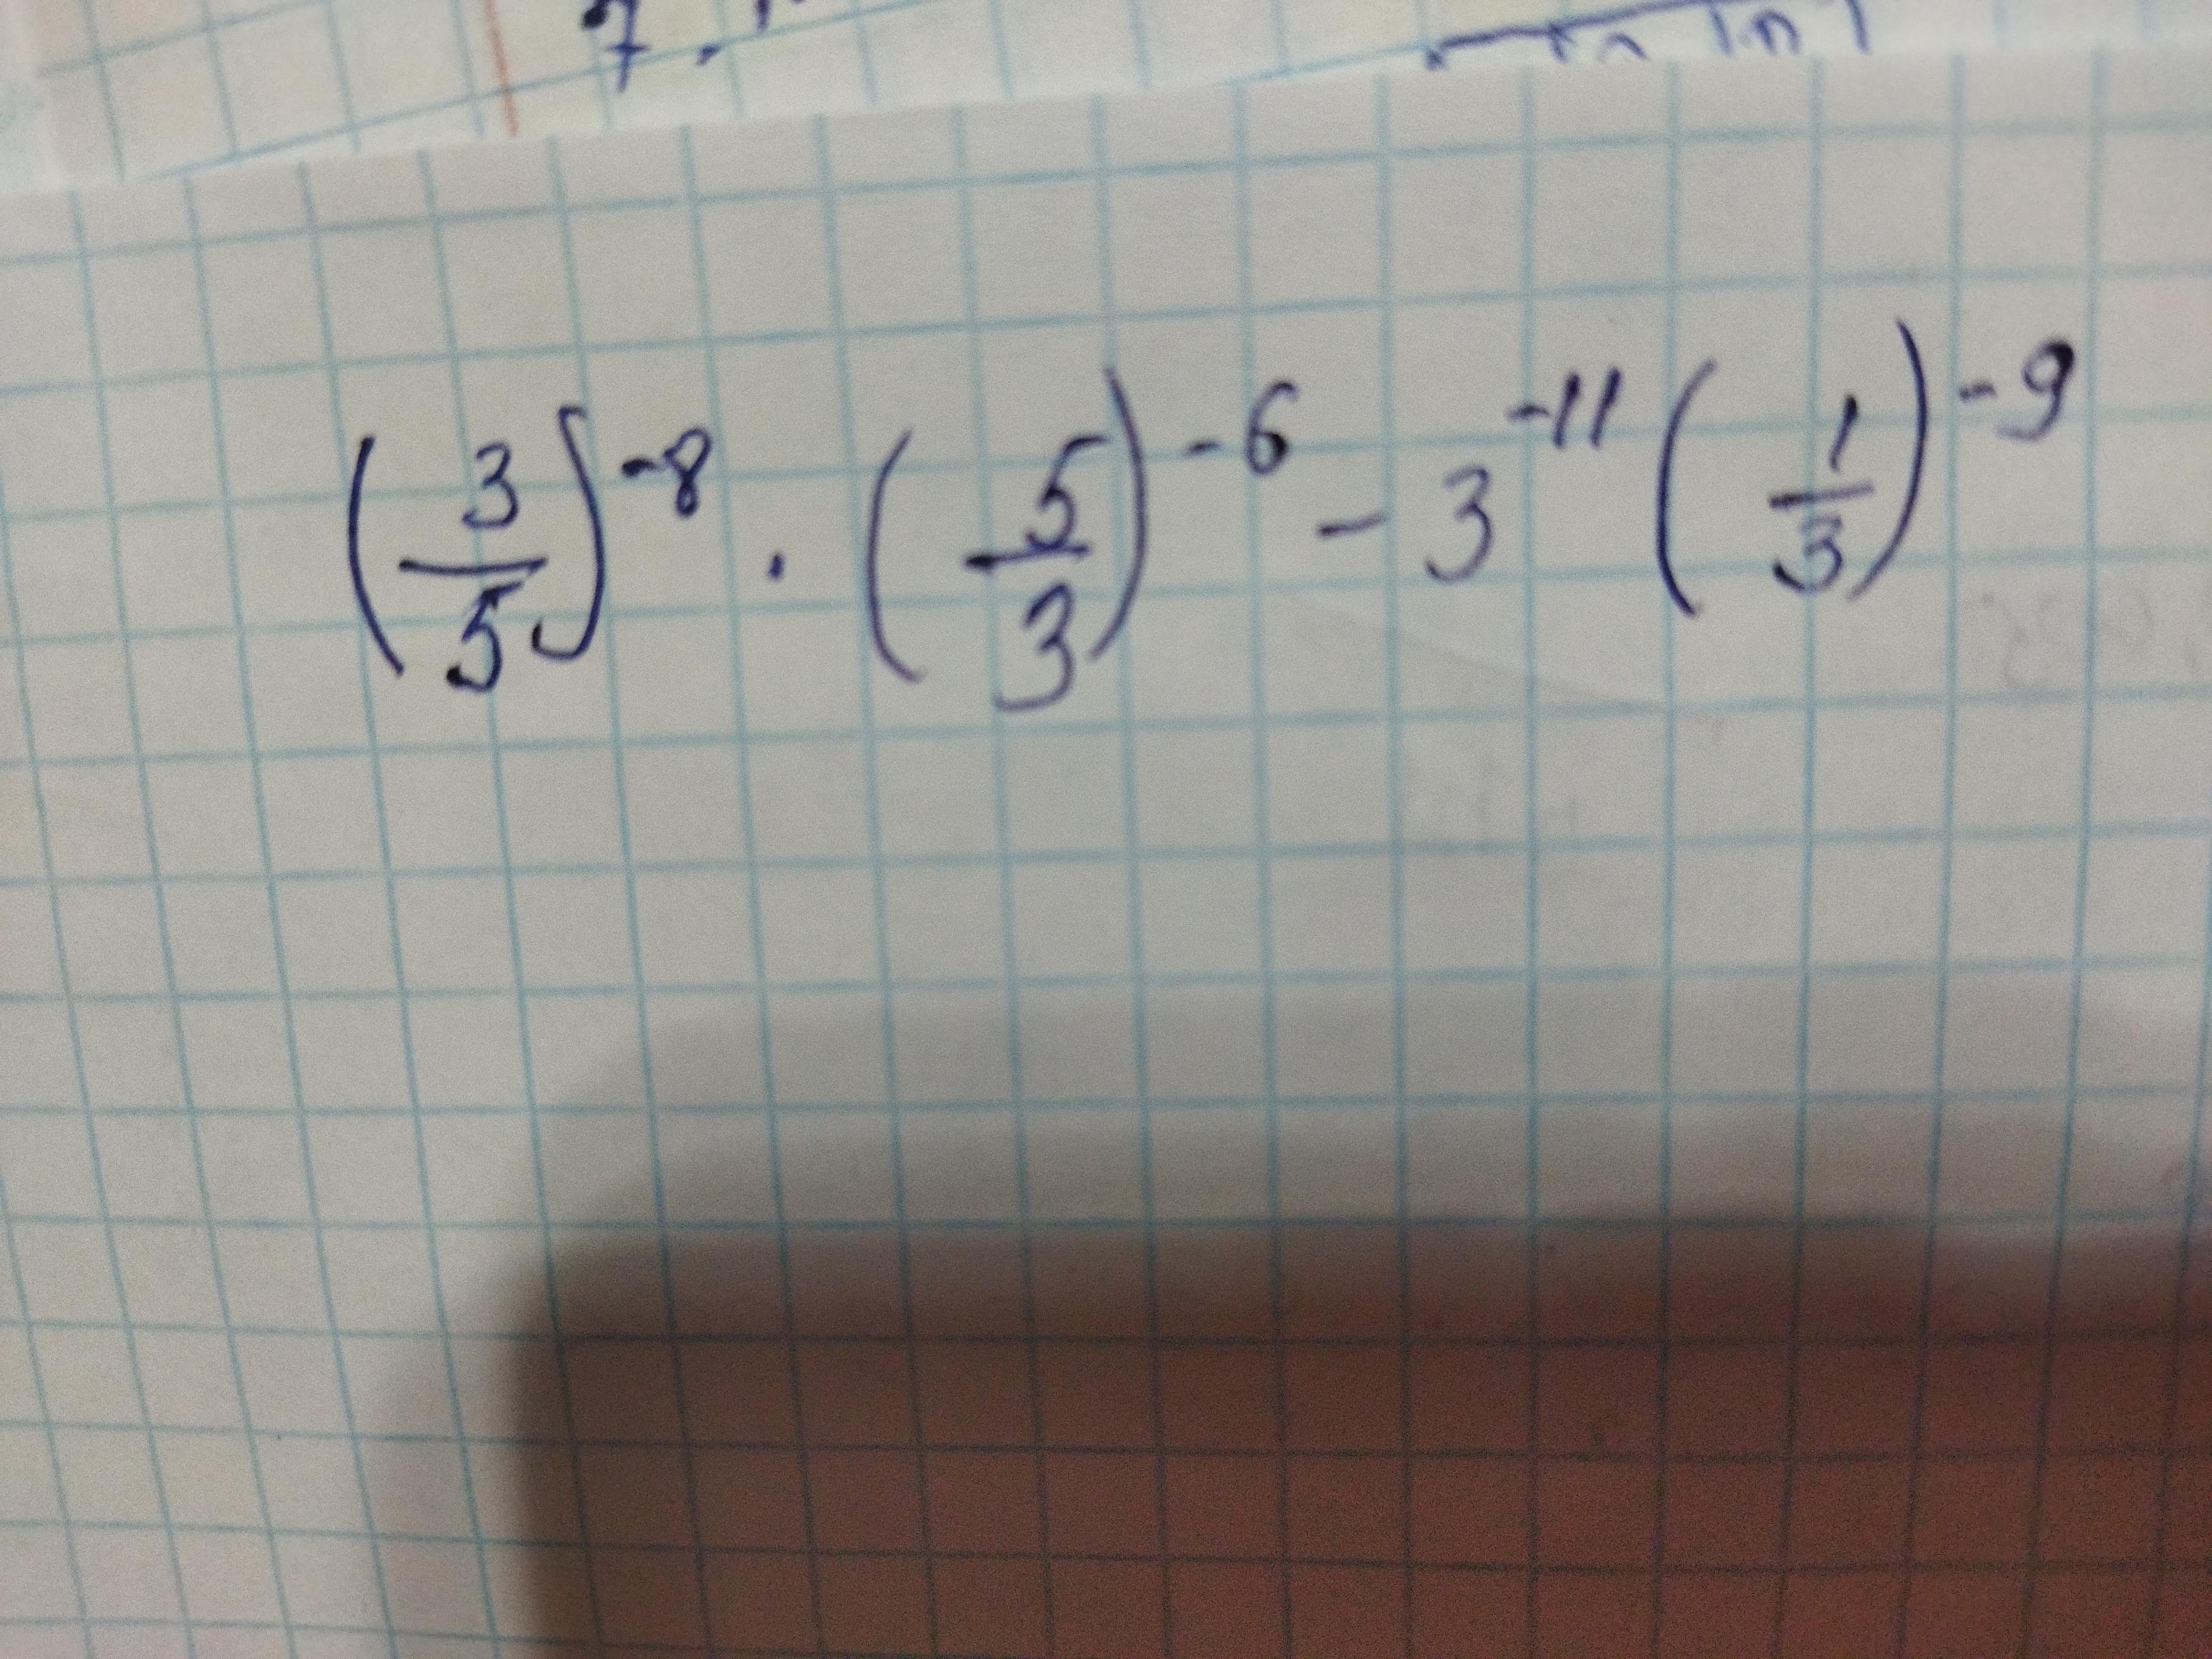 7.
(3/5)^-8 · (5/3)^-6 - 3^-11 (1/3)^-9